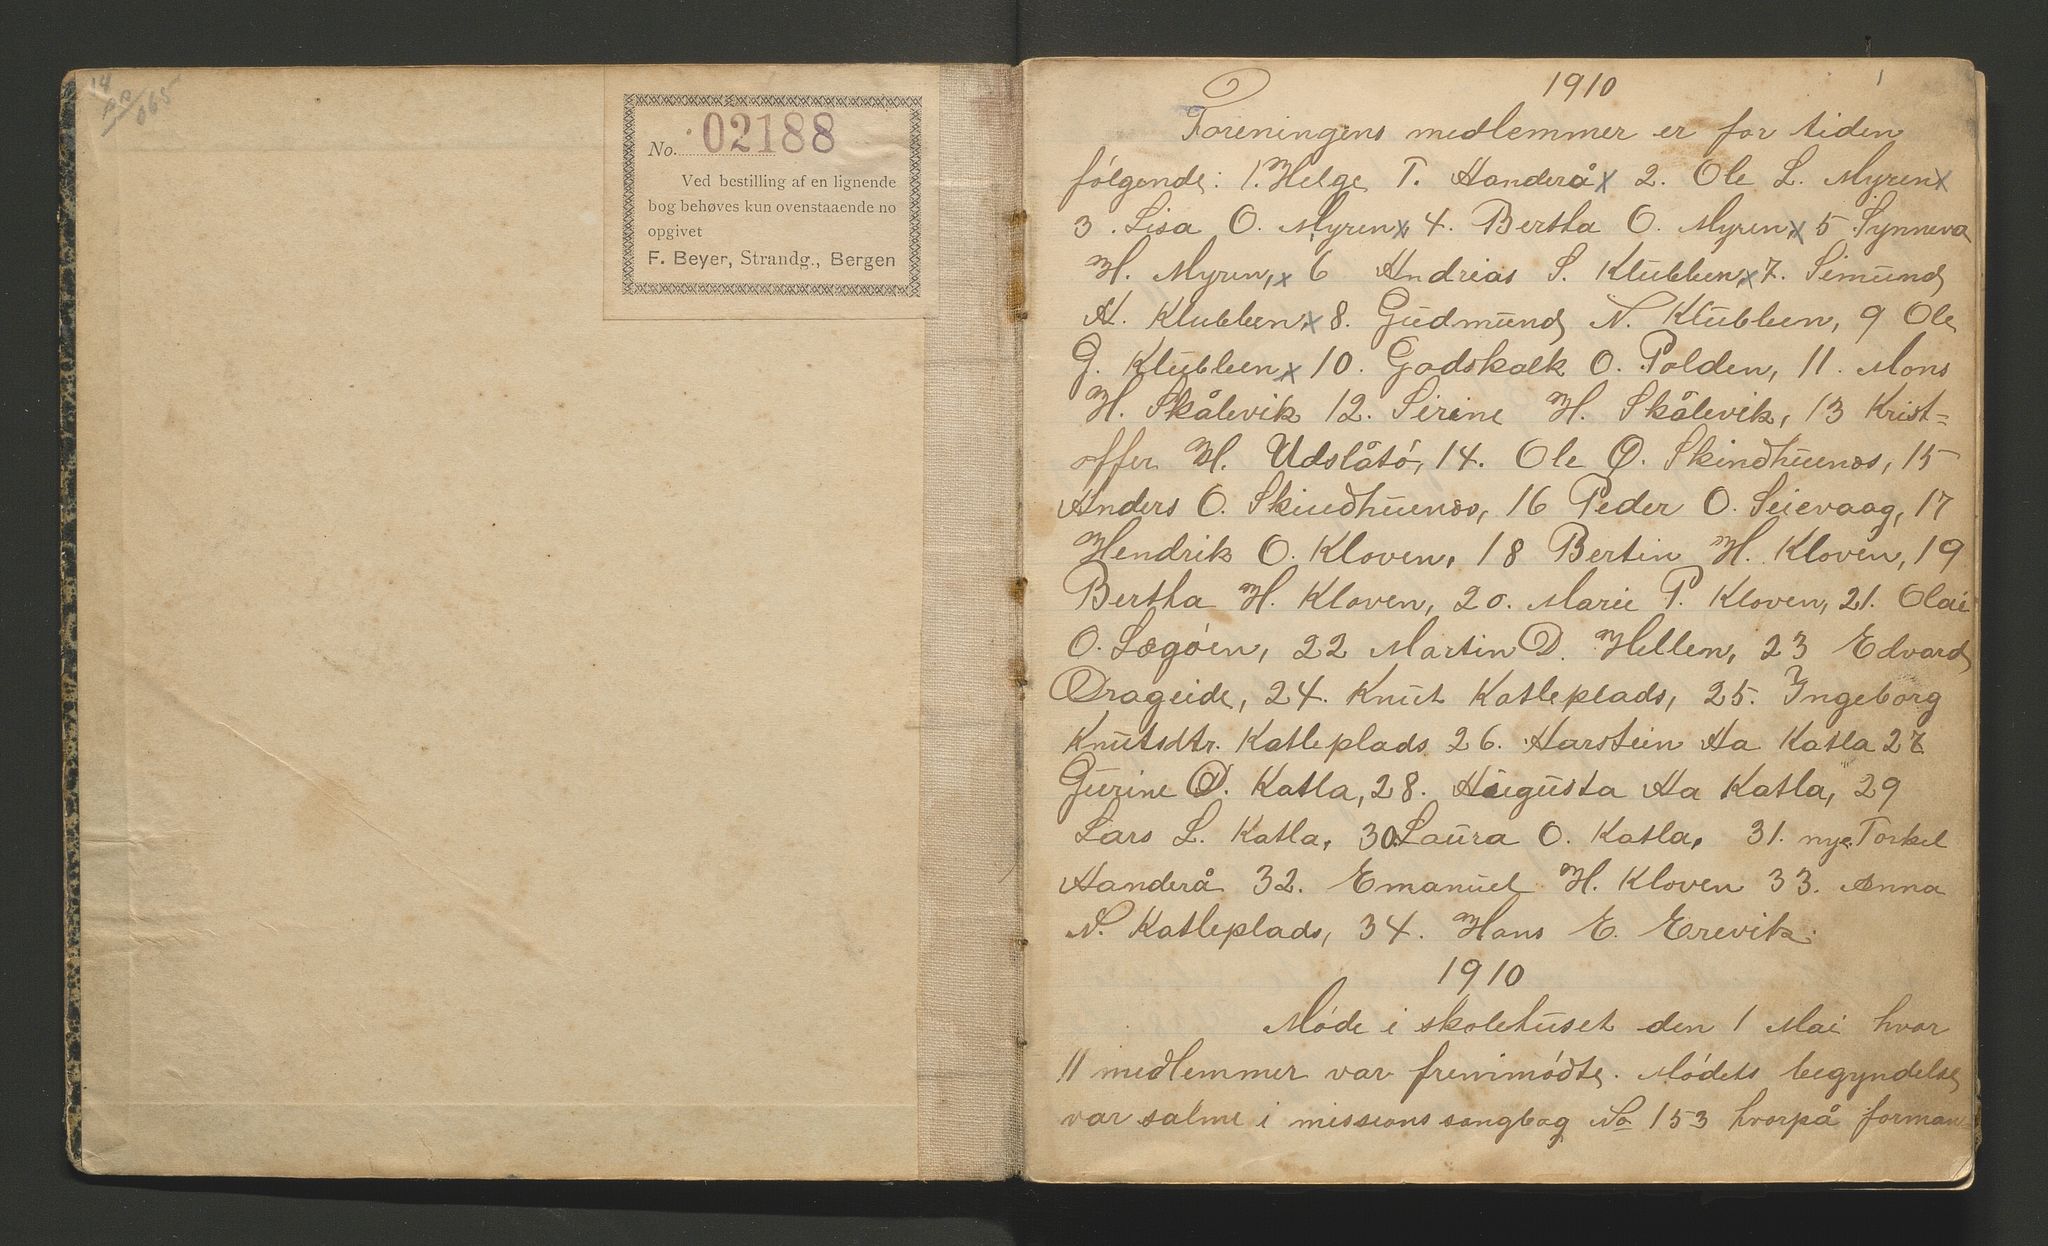 14
pp/065
No. 02188
Ved bestilling af en lignende
bog behøves kun ovenstaaende no
opgivet
F. Beyer, Strandg., Bergen
1
1910
Foreningens medlemmer er for tiden
følgende: 1. Helge T. Handerå x 2. Ole L. Myren x
3. Lisa O. Myren, x 4. Bertha O. Myren, x 5 Synneva
H. Myren, x 6 Andreas S. Klubben, x 7. Simund
A. Klubben, x 8. Gudmund N. Klubben, 9 Ole
G. Klubben x 10. Godskalk O. Polden, 11. Mons
H. Skålevik 12. Sirine H. Skålevik, 13 Krist=
offer H. Udslåtö, 14. Ole O. Skindhuenæs, 15
Anders O. Skindhuenæs, 16 Peder O. Seievaag, 17
Hendrik O. Kloven, 18 Bertin H. Kloven, 19
Bertha H. Kloven, 20. Marie P. Kloven, 21. Olai
O. Lægöen, 22 Martin D. Hellem, 23 Edvard
Drageide, 24. Knut Katleplads, 25. Ingeborg
Knutsdtr. Katleplads 26. Harstein Aa Katla 27
Gurine D. Katla, 28. Augusta Aa Katla, 29
Lars L. Katla, 30. Laura O. Katla, 31. nye. Torkel
Handerå 32. Emanuel H. Kloven 33. Anna
N. Katleplads, 34. Hans E. Erevik.
1910
Möde i skolehuset den 1 Mai hvor
11 medlemmer var fremmödte. Mödets begyndelse
var salme i missions sangbog No 153 hvorpå forman=